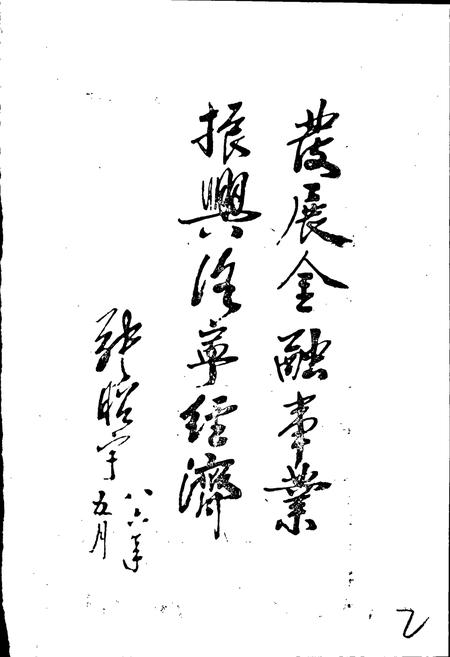 發展金融事業
振興隆寧經濟
張昭宇
八六年
五月
乙